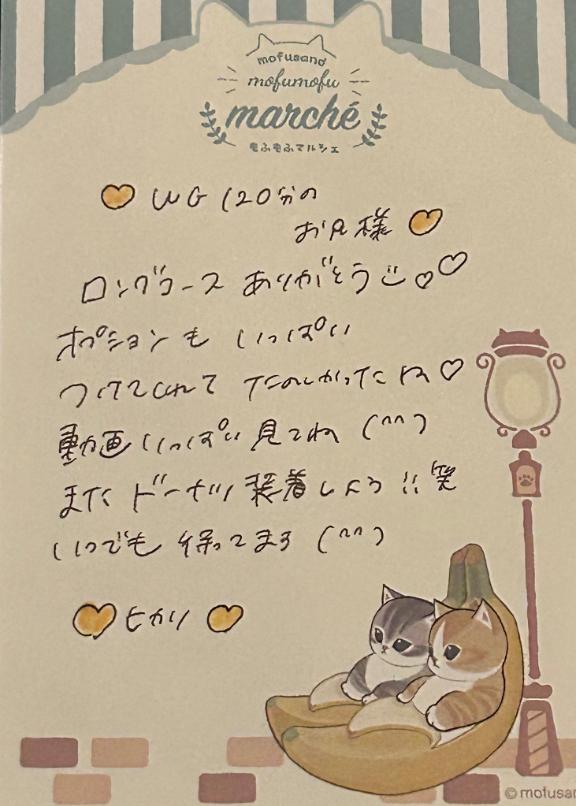 mofusand
mofumofu
marché
もふもふマルシェ
WG 120分の
お兄様
ロングコース ありがとう
オプションも いっぱい
つけてくれて たのしかったね
動画いっぱい見てね (^^)
また ドーナツ 装着しよう !! 笑
いつでも 待ってまる (^^)
ヒカリ
© mofusan